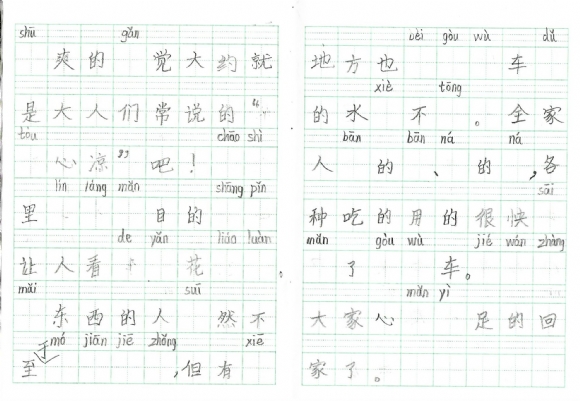 shū gǎn
爽的 觉大约就
是大人们常说的“
tòu chāo shì
心凉”吧！
lín láng mǎn shāng pǐn
里 目的
de yǎn liáo luàn
让人看 花 。
mǎi suī
东西的人 然不
mó jiān jiē zhǒng xiē
至于 ，但有
gòu wù dǔ
地方也 车
xiè tōng
的水 不 。全家
bān bān ná ná
人 的、 的，各
sāi
种吃的用的很快
mǎn gòu wù jié wán zhàng
了 车。
mǎn yì
大家心 足的回
家了。